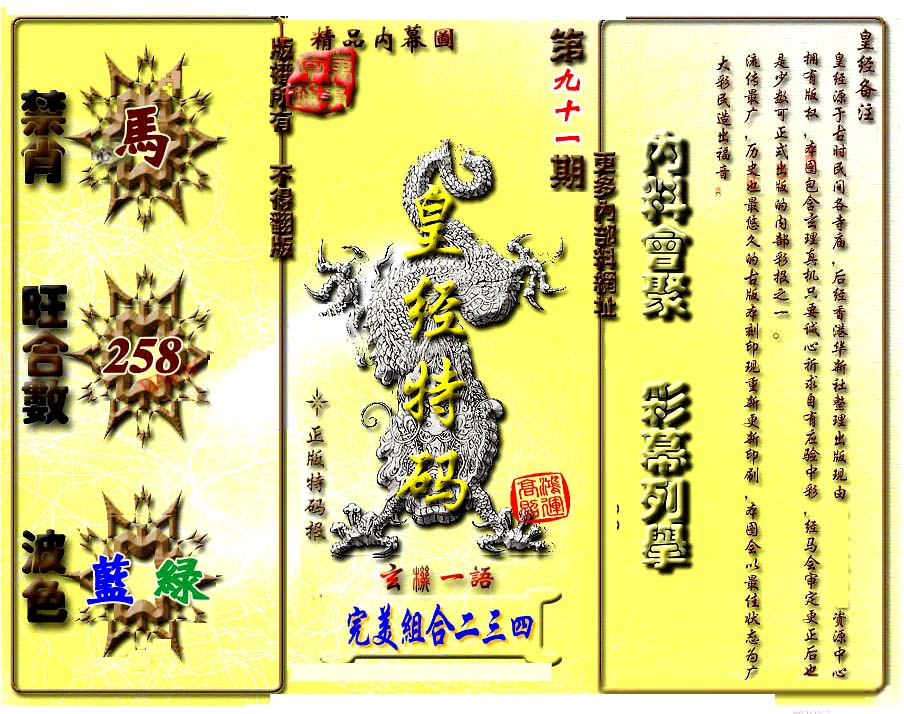 皇经备注
皇经源于古时民间各寺庙，后经香港华新社整理出版现由 资源中心
拥有版权，本图包含玄理真机只要诚心祈求自有应验中彩，经马会审定更正后也
是少数可正式出版的内部彩报之一。
流传最广，历史也最悠久的古版本刻印现重新更新印刷，本图会以最佳状态为广
大彩民造出福音
内料會聚 彩幕列舉
更多内部料網址
第九十一期
精品内幕圖
皇经特码
正版特码报
鴻運高照
玄機一語
完美組合二三四
版權所有 不得翻版
禁肖
馬
旺合數
258
波色
藍 緑